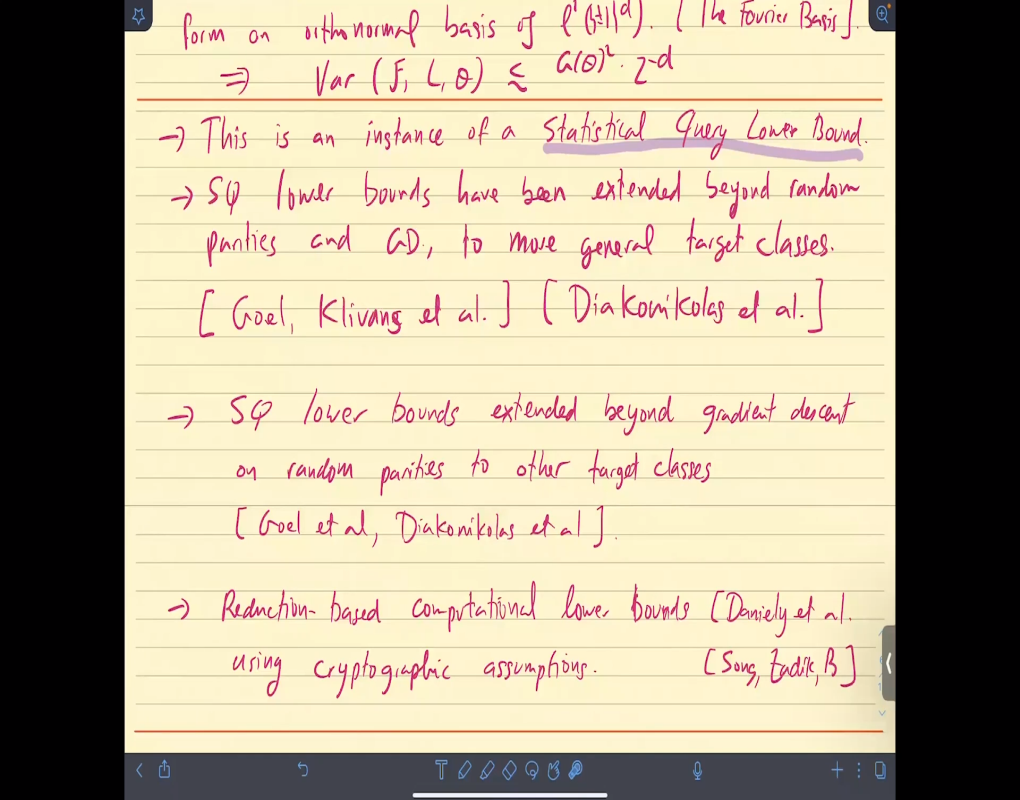 form an orthonormal basis of ℓ²({±1}^d). [The Fourier Basis].
⇒ Var (F, L, θ) ≤ G(θ)² · 2^-d
→ This is an instance of a Statistical Query Lower Bound.
→ SQ lower bounds have been extended beyond random
parities and GD, to more general target classes.
[Goel, Klivans et al.] [Diakonikolas et al.]
→ SQ lower bounds extended beyond gradient descent
on random parities to other target classes
[Goel et al, Diakonikolas et al].
→ Reduction-based computational lower bounds [Daniely et al.
using cryptographic assumptions. [Song, Zadik, B]